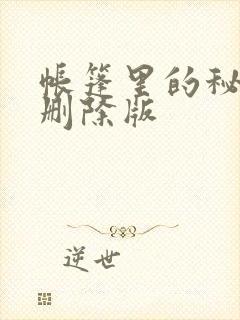 帐篷里的秘
删除版
逆世